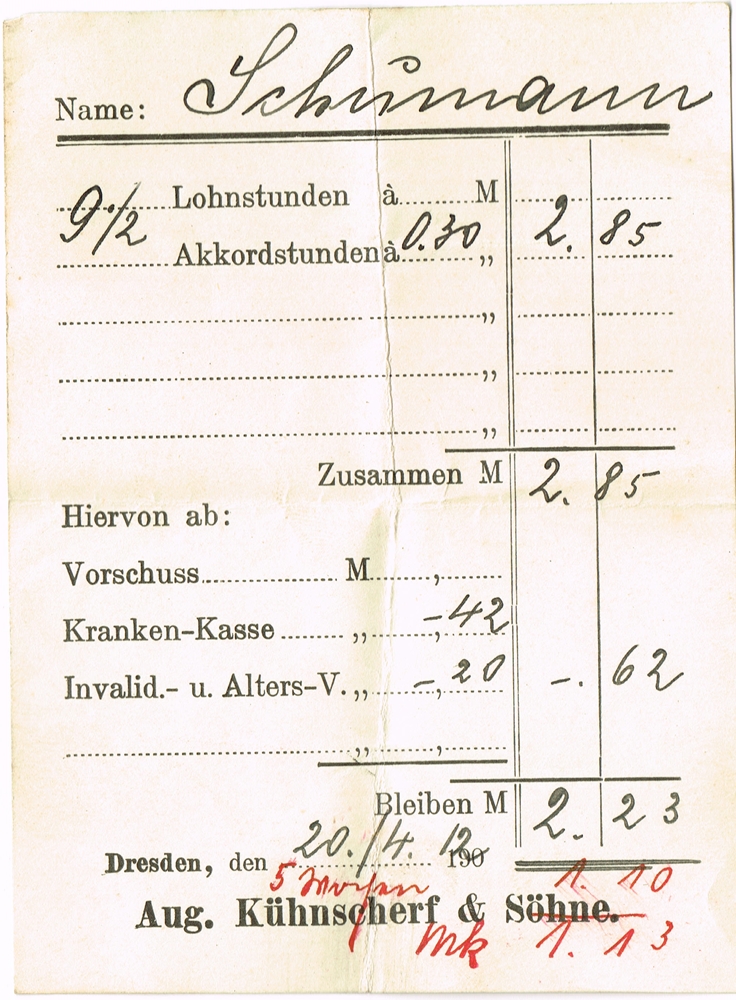 Name: Schumann
9 1/2 Lohnstunden à M
Akkordstunden à 0.30 „ 2. 85
„
„
„
Zusammen M 2. 85
Hiervon ab:
Vorschuss M ,
Kranken-Kasse „ -,42
Invalid.- u. Alters-V. „ -,20 -. 62
„ ,
Bleiben M 2. 23
Dresden, den 20./4. 12 190
5 Wochen 1. 10
Aug. Kühnscherf & Söhne.
Mk 1. 13